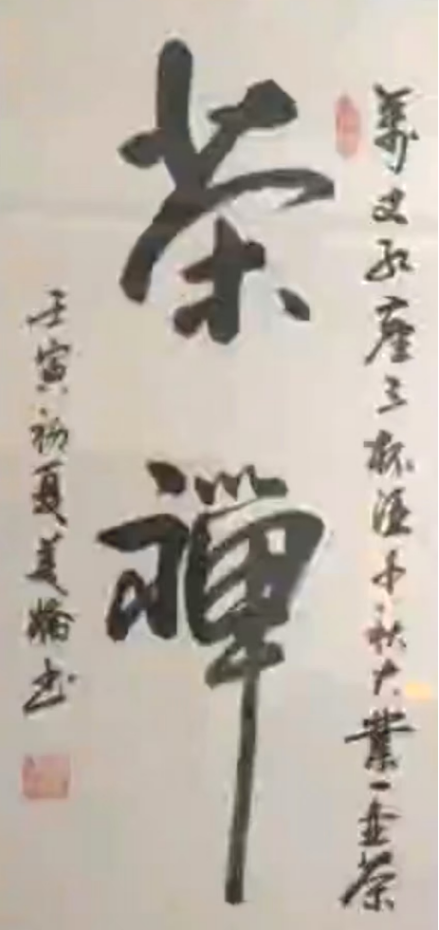 萬丈红塵三杯酒千秋大業一壺茶
茶禅
壬寅初夏美书